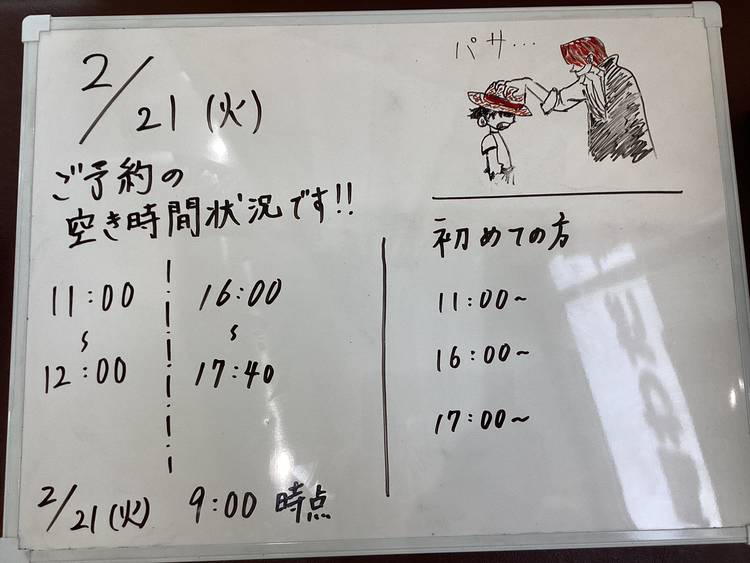 2/21(火)
パサ…
ご予約の
空き時間状況です!!
11:00
~
12:00
16:00
~
17:40
初めての方
11:00~
16:00~
17:00~
2/21(火) 9:00 時点